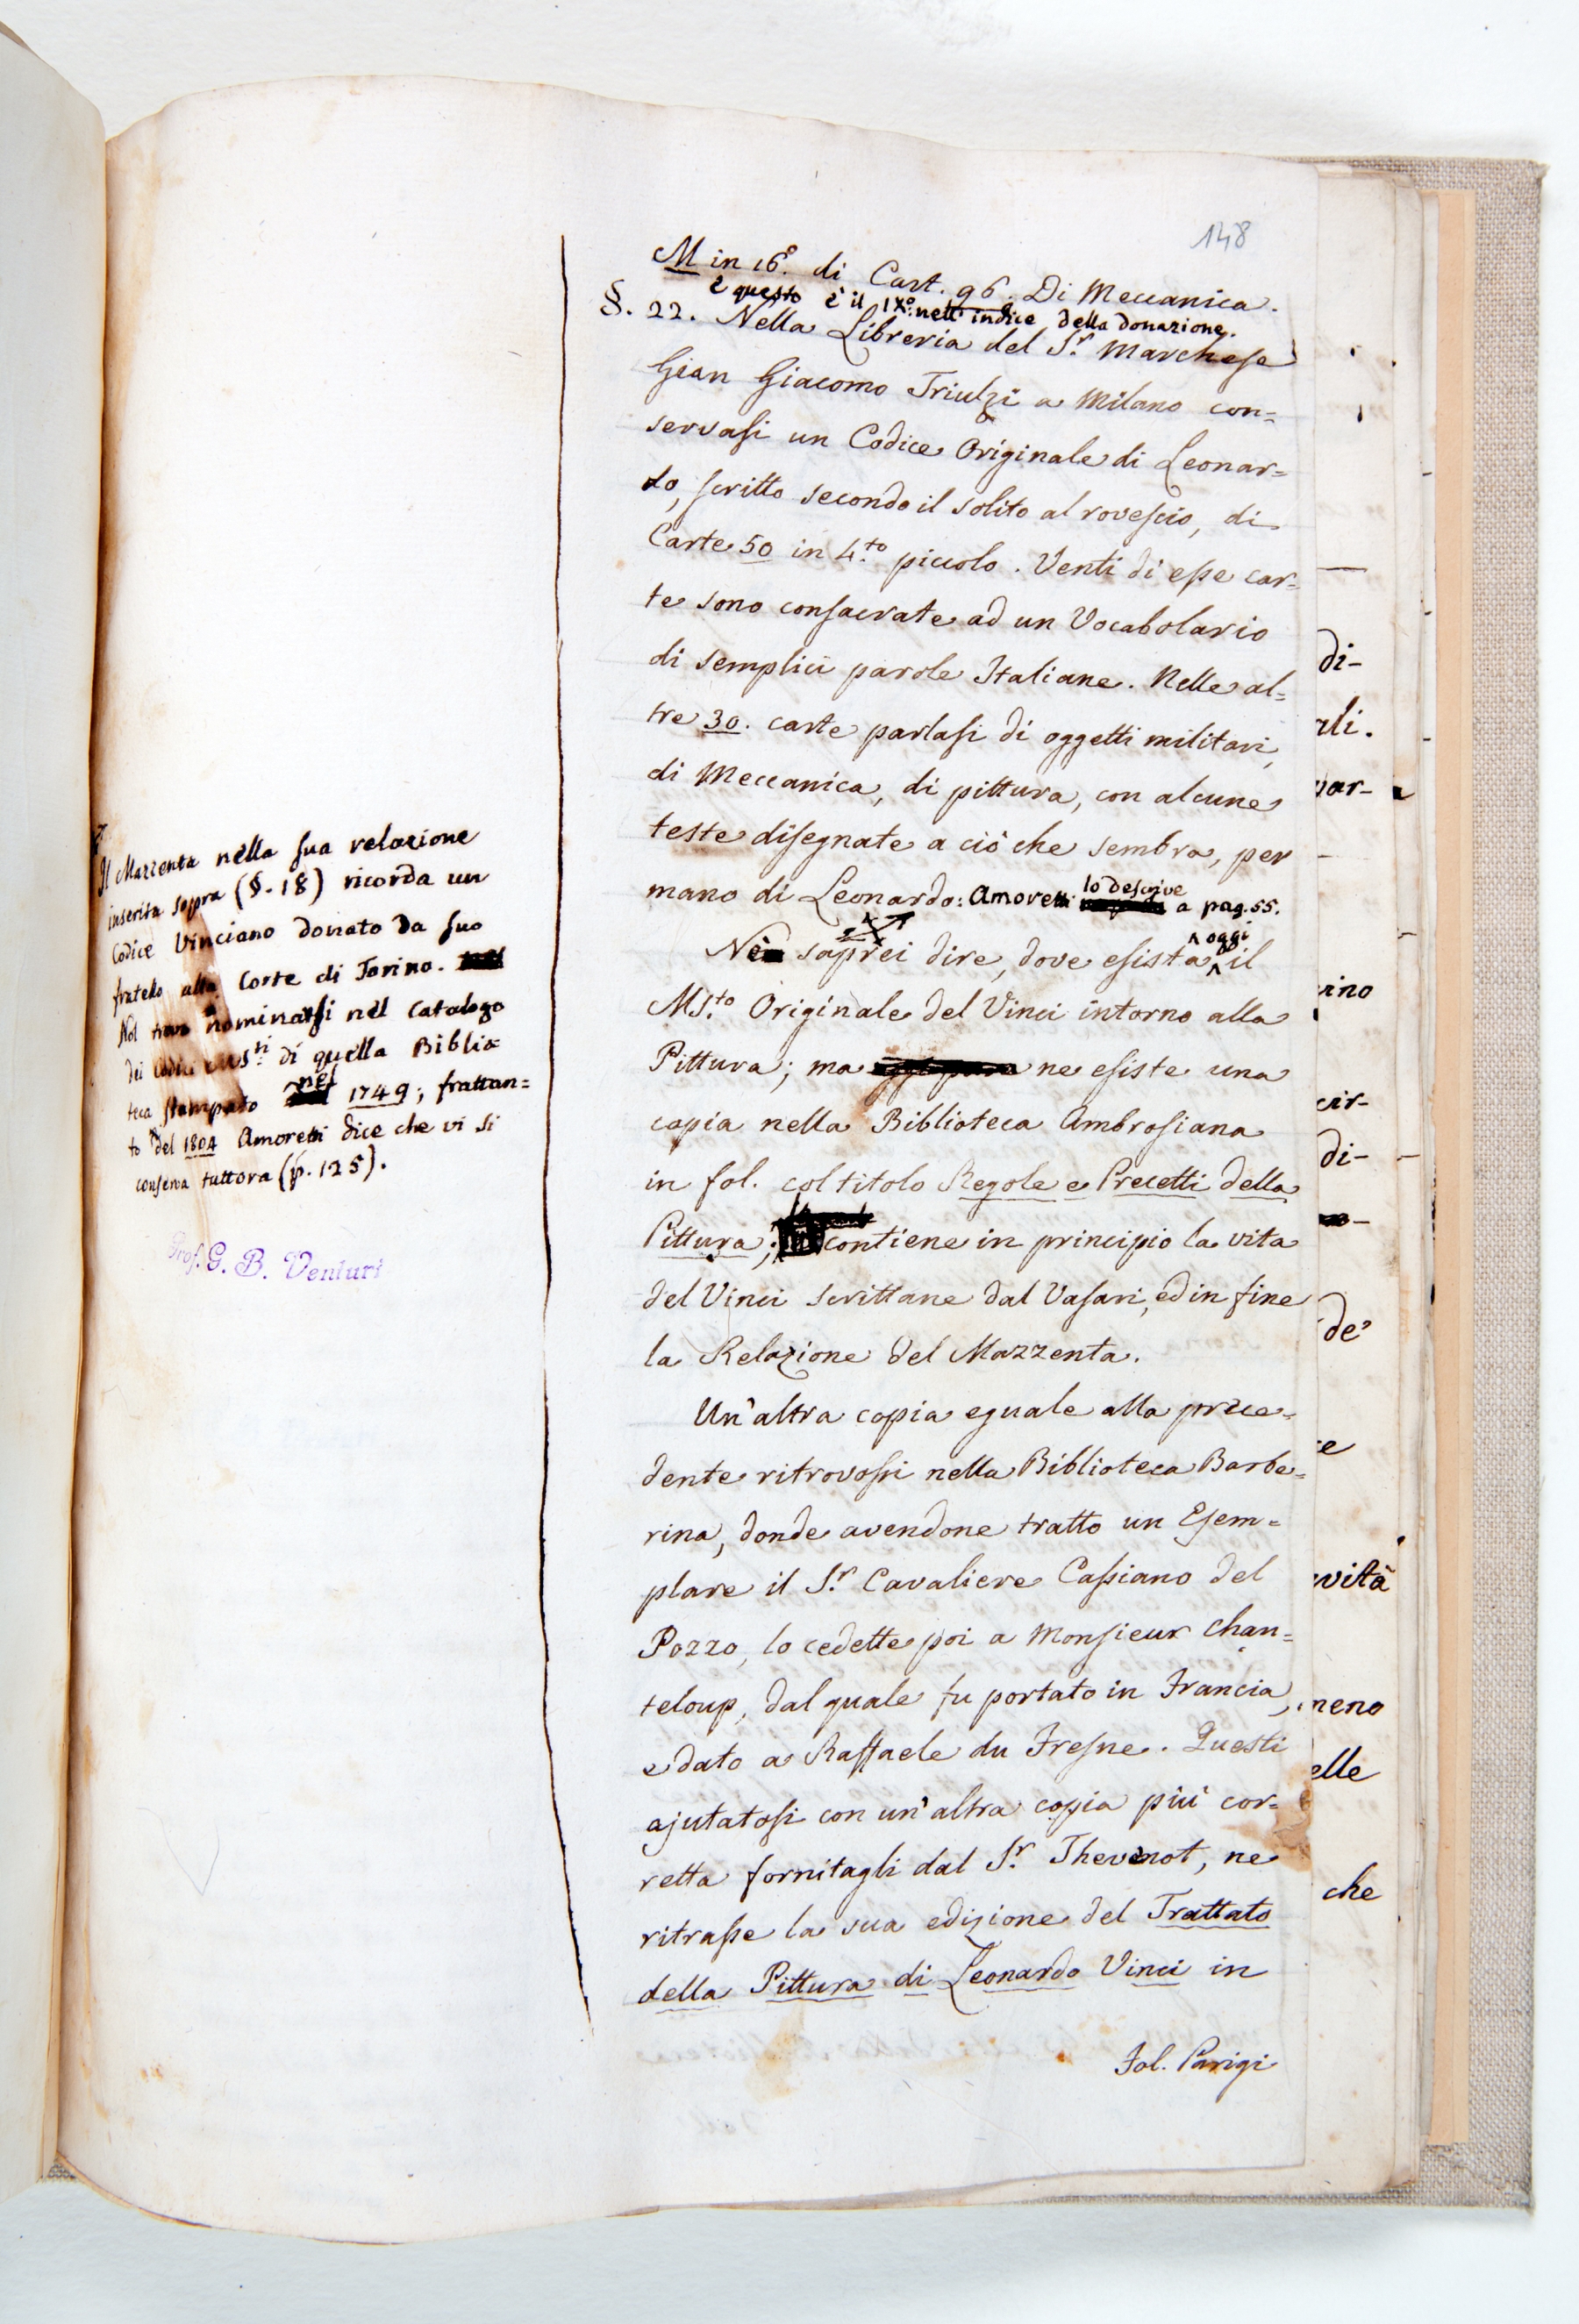 148
M in 16.º di Cart. 96. Di Meccanica.
e questo è il IXº. nell' indice della donazione.
§. 22. Nella Libreria del S.r Marchese
Gian Giacomo Triulzi a Milano con=
servasi un Codice Originale di Leonar=
do, scritto secondo il solito al rovescio, di
Carte 50 in 4.to piccolo. Venti di esse car=
te sono consacrate ad un Vocabolario
di semplici parole Italiane. Nelle al=
tre 30. carte parlasi di oggetti militari,
di Meccanica, di pittura, con alcune
teste disegnate a ciò che sembra, per
mano di Leonardo: Amoretti lo descrive a pag. 55.
Nè saprei dire, dove esista oggi il
MS.to Originale del Vinci intorno alla
Pittura; ma ne esiste una
copia nella Biblioteca Ambrosiana
in fol. col titolo Regole e Precetti della
Pittura; contiene in principio la vita
del Vinci scrittane dal Vasari, ed in fine
la Relazione del Mazzenta.
Un'altra copia eguale alla prece=
dente ritrovossi nella Biblioteca Barbe=
rina, donde avendone tratto un Esem=
plare il S.r Cavaliere Cassiano del
Pozzo, lo cedette poi a Monsieur Chan=
teloup, dal quale fu portato in Francia,
e dato a Raffaele du Fresne. Questi
ajutatosi con un'altra copia più cor=
retta fornitagli dal S.r Thevenot, ne
ritrasse la sua edizione del Trattato
della Pittura di Leonardo Vinci in
Fol. Parigi
Il Mazzenta nella sua relazione
inserita sopra (§. 18) ricorda un
Codice Vinciano donato da suo
fratello alla Corte di Torino.
Nol trovo nominarsi nel Catalogo
dei Codici MS.ti di quella Biblio=
teca stampato nel 1749; frattan=
to del 1804 Amoretti dice che vi si
conserva tuttora (p. 125).
Prof. G. B. Venturi
di-
ali.
var-
rino
cir-
di-
de'
ce
vità
meno
elle
che